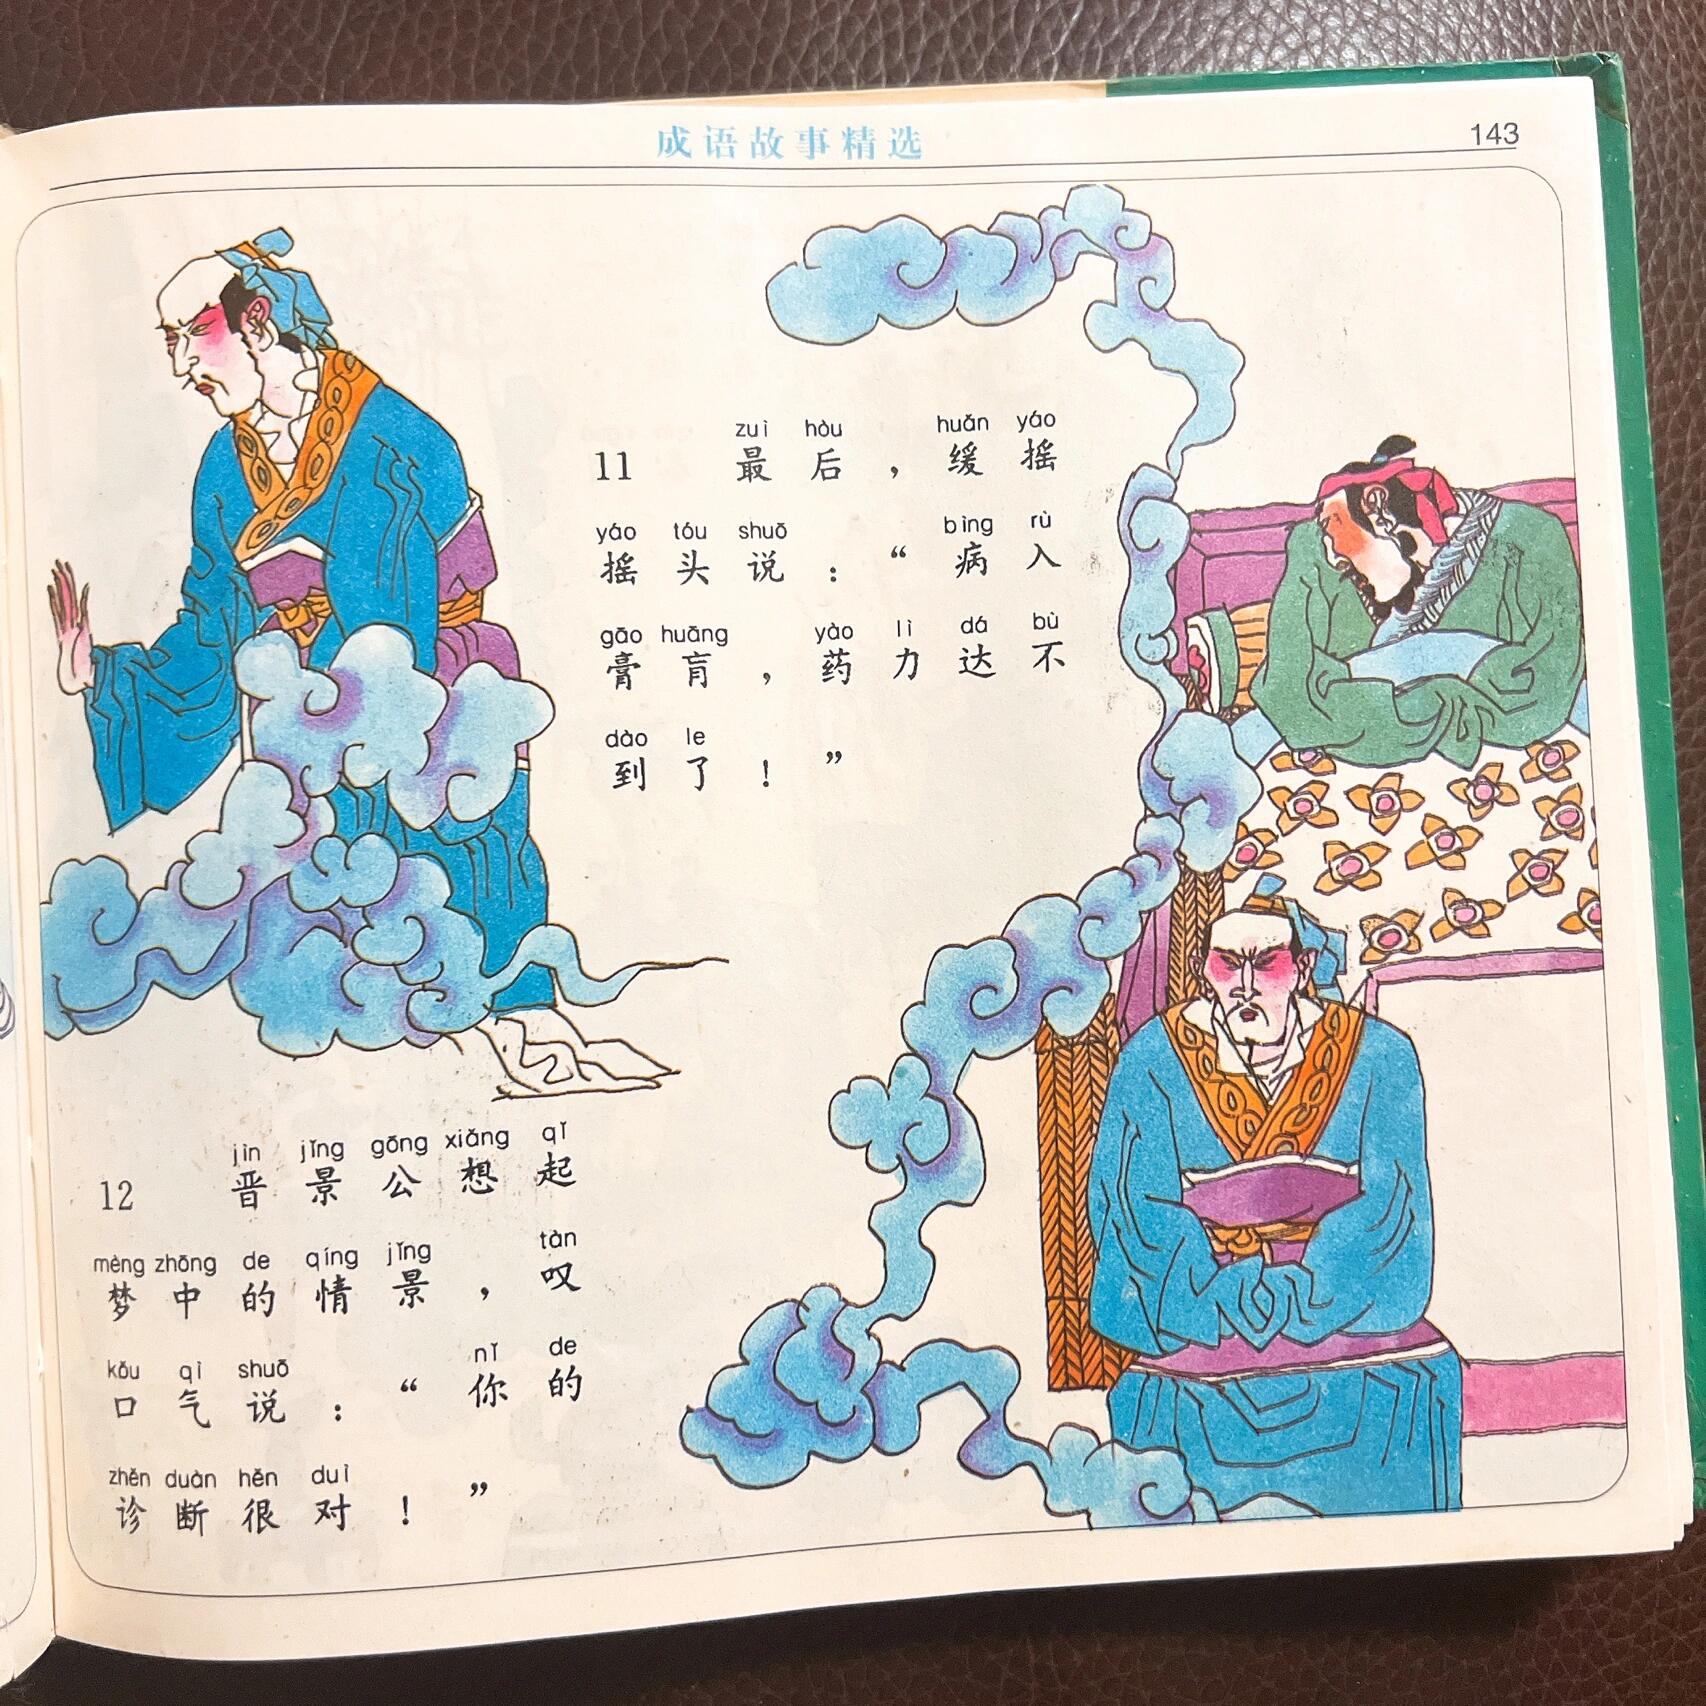 成语故事精选
143
zuì hòu huǎn yáo
11 最后，缓摇
yáo tóu shuō bìng rù
摇头说：“病入
gāo huāng yào lì dá bù
膏肓，药力达不
dào le
到了！”
jìn jǐng gōng xiǎng qǐ
12 晋景公想起
mèng zhōng de qíng jǐng tàn
梦中的情景，叹
kǒu qì shuō nǐ de
口气说：“你的
zhěn duàn hěn duì
诊断很对！”